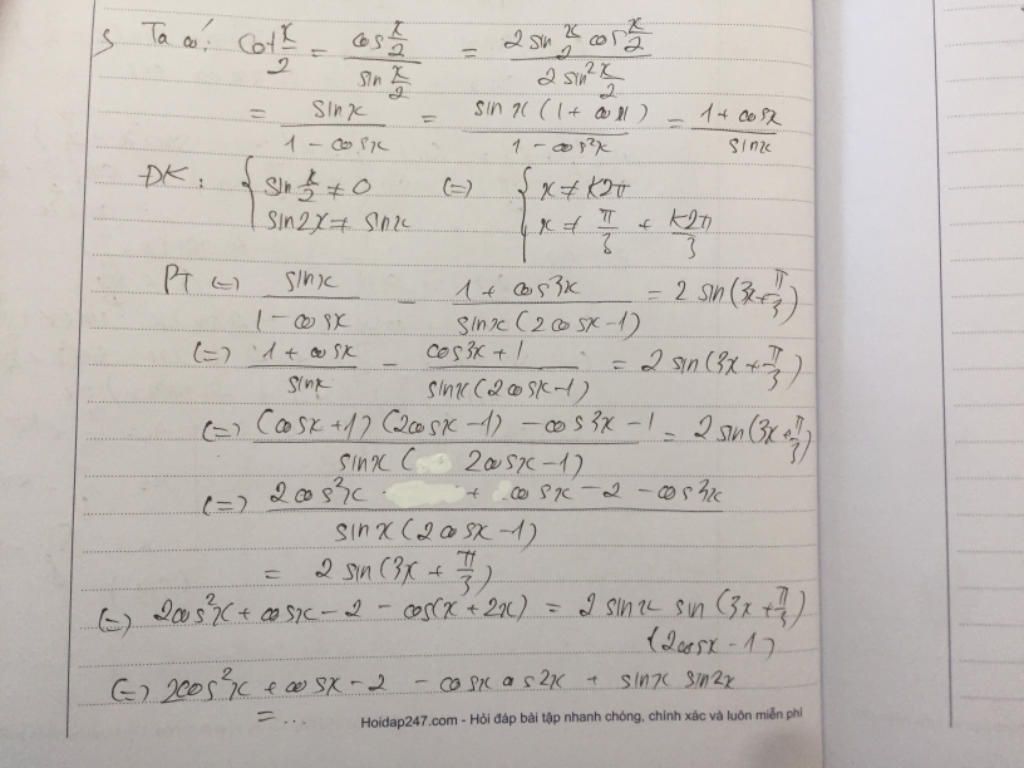 Ta có: cot x/2 = (cos x/2)/(sin x/2) = (2 sin x/2 cos x/2)/(2 sin² x/2)
= sinx/(1 - cosx) = sinx(1 + cosx)/(1 - cos²x) = (1 + cosx)/sinx
ĐK: { sin x/2 ≠ 0 (=) { x ≠ k2π
sin2x ≠ sinx x ≠ π/3 + k2π/3
PT (=) sinx/(1 - cosx) - (1 + cos3x)/(sinx(2cosx - 1)) = 2 sin(3x + π/3)
(=) (1 + cosx)/sinx - (cos3x + 1)/(sinx(2cosx - 1)) = 2 sin(3x + π/3)
(=) ((cosx + 1)(2cosx - 1) - cos3x - 1)/(sinx( 2cosx - 1)) = 2 sin(3x + π/3)
(=) (2cos²x + cosx - 2 - cos3x)/(sinx(2cosx - 1))
= 2 sin(3x + π/3)
(=) 2cos²x + cosx - 2 - cos(x + 2x) = 2 sinx sin(3x + π/3)
(2cosx - 1)
(=) 2cos²x + cosx - 2 - cosx cos2x + sinx sin2x
= ...
Hoidap247.com - Hỏi đáp bài tập nhanh chóng, chính xác và luôn miễn phí